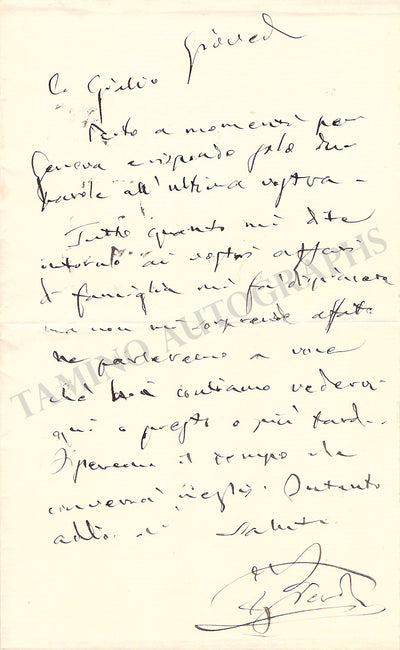 Giovedì
C. Giulio
Parto a momenti per
Genova e rispondo solo due
parole all'ultima vostra -
Tutto quanto mi dite
intorno ai vostri affari
di famiglia mi fa dispiacere
ma non mi sorprende affatto
Ne parleremo a voce
chè noi contiamo vedervi
quì o presto o più tardi.
il tempo che
converrà meglio. Intanto
addio saluti
G Verdi
TAMINO AUTOGRAPHS